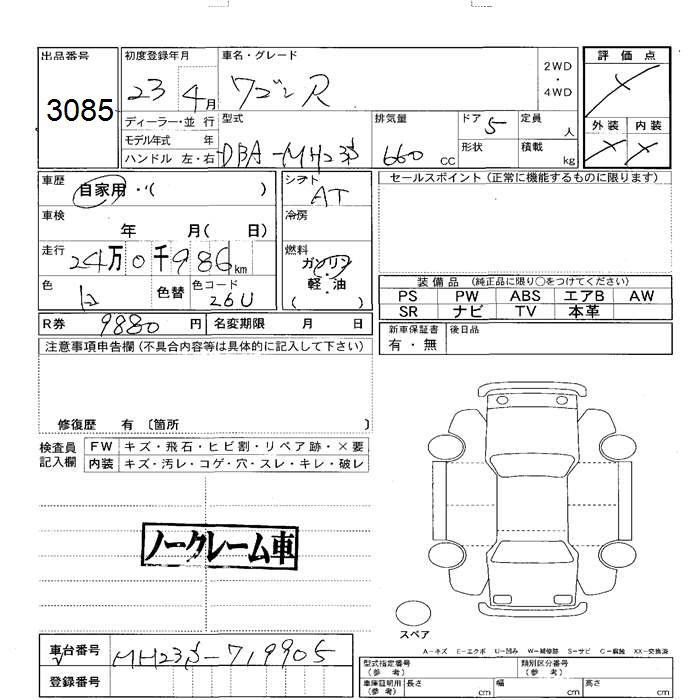 出品番号
3085
初度登録年月
23 4月
車名・グレード
ワゴンR
2WD
・
4WD
評価点
ディーラー・並行
モデル年式 年
ハンドル 左・右
型式
DBA-MH23S
排気量
660 cc
ドア 5
形状
定員 人
積載 kg
外装 内装
車歴
自家用・( )
車検
年 月( 日)
走行
24万0千986km
色
白
色替
色コード
26U
シフト
AT
冷房
燃料
ガソリン
軽・油
( )
セールスポイント (正常に機能するものに限ります)
装備品 (純正品に限り○をつけてください)
PS PW ABS エアB AW
SR ナビ TV 本革
新車保証書
有・無
後日品
R券 9880円
名変期限 月 日
注意事項申告欄(不具合内容等は具体的に記入して下さい)
修復歴 有 〔箇所
検査員
記入欄
FW キズ・飛石・ヒビ割・リペア跡・×要
内装 キズ・汚レ・コゲ・穴・スレ・キレ・破レ
ノークレーム車
スペア
A-キズ E-エクボ U-凹み W-補修跡 S-サビ C-腐蝕 XX-交換済
車台番号
MH23S-719905
登録番号
型式指定番号
(参考)
類別区分番号
(参考)
車庫証明用
(参考)
長さ cm
幅 cm
高さ cm